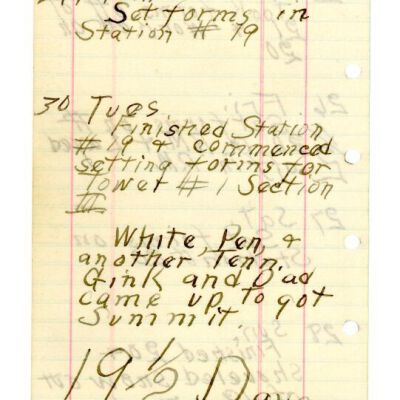 Set forms in
Station # 19
30 Tues
Finished Station
#19 & commenced
setting forms for
Tower # 1 Section
III
White, Pen, &
another Tenn.
Gink and Dad
came up to got
Summit.
19 1/2 Days